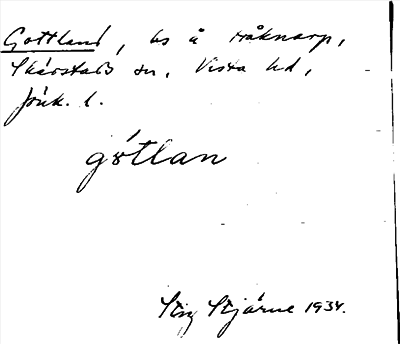 Gottland, ls å Råknarp,
Skärstads sn, Vista hd,
Jönk. l.
gótlan
Stig Stjärne 1934.